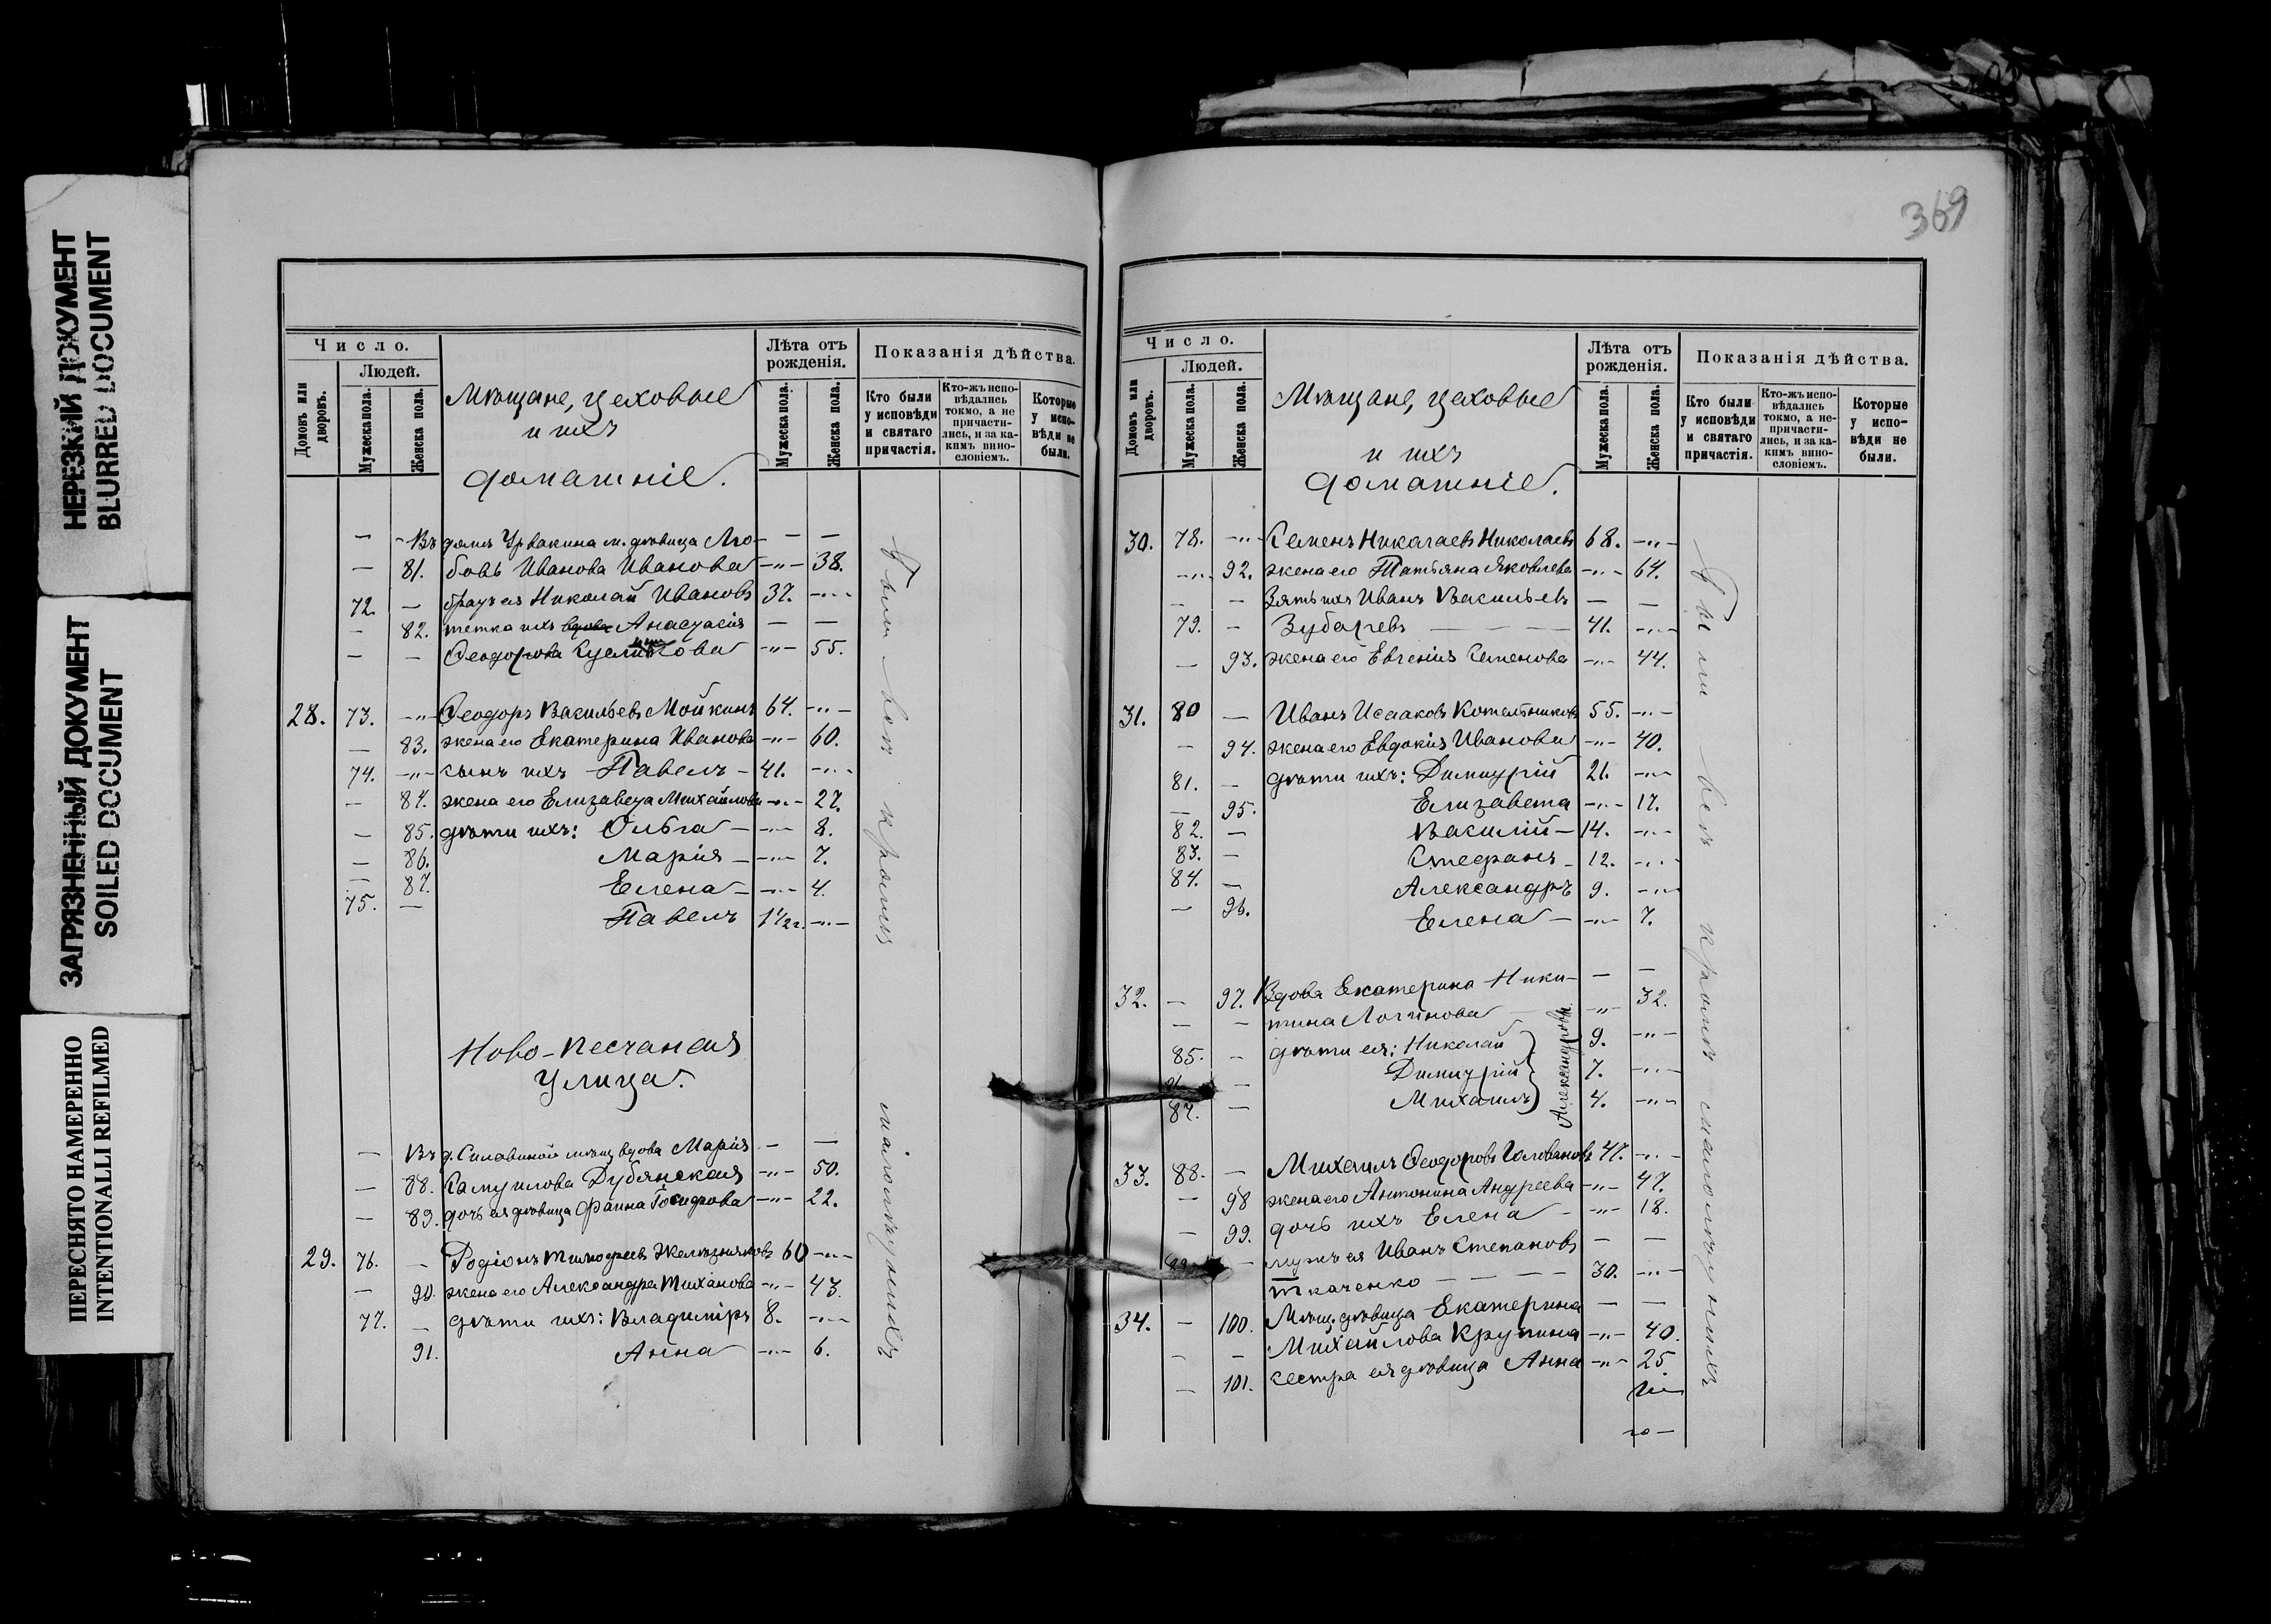 НЕРЕЗКИЙ ДОКУМЕНТ
BLURRED DOCUMENT
ЗАГРЯЗНЕННЫЙ ДОКУМЕНТ
SOILED DOCUMENT
ПЕРЕСНЯТО НАМЕРЕННО
INTENTIONALLI REFILMED
Число.
Людей.
Домовъ или дворовъ.
Мужеска пола.
Женска пола.
Мѣщане, цеховые
и ихъ
домашніе.
Лѣта отъ рожденія.
Мужеска пола.
Женска пола.
Показанія дѣйства.
Кто были у исповѣди и святаго причастія.
Кто-жъ исповѣдались токмо, а не причастились, и за какимъ винословіемъ.
Которые у исповѣди не были.
— — Въ домѣ Урвакина м. дѣвица Лю- — —
— 81. бовь Иванова Иванова —"— 38.
72. — братъ ея Николай Ивановъ 37. —"—
— 82. тетка ихъ вдова Анастасія — —
— — Ѳеодорова —"— 55.
28. 73. —"— Ѳеодоръ Васильевъ Мойкинъ 64. —"—
— 83. жена его Екатерина Иванова —"— 60.
74. —"— сынъ ихъ Павелъ — 41. —"—
— 84. жена его Елизавета Михайлова —"— 27.
— 85. дѣти ихъ: Ольга — —"— 8.
— 86. Марія — —"— 7.
— 87. Елена — —"— 4.
75. — Павелъ 1 1/2 г. —"—
Ново-Песчаная
улица.
— Въ д. Силовиной мѣщ. вдова Марія — —
— 88. Самуилова Дубянская —"— 50.
— 89. дочь ея дѣвица Фаина —"— 22.
29. 76. — Родіонъ Тимоѳеевъ Желѣзняковъ 60 —"—
— 90. жена его Александра Тиханова —"— 43.
77. — дѣти ихъ: Владиміръ 8. —"—
91. Анна —"— 6.
Были всѣ кромѣ малолѣтнихъ
369
Число.
Людей.
Домовъ или дворовъ.
Мужеска пола.
Женска пола.
Мѣщане, цеховые
и ихъ
домашніе.
Лѣта отъ рожденія.
Мужеска пола.
Женска пола.
Показанія дѣйства.
Кто были у исповѣди и святаго причастія.
Кто-жъ исповѣдались токмо, а не-причастились, и за какимъ винословіемъ.
Которые у исповѣди не были.
30. 78. —"— Семенъ Николаевъ Николаевъ 68. —"—
—"— 92. жена его Татьяна Яковлева —"— 64.
— — Зять ихъ Иванъ Васильевъ — —
79. — Зубаревъ — — — 41. —"—
— 93. жена его Евгенія Семенова —"— 44.
31. 80 — Иванъ Исааковъ Котельниковъ 55. —"—
— 94. жена его Евдокія Иванова —"— 40.
81. — дѣти ихъ: Димитрій 21. —"—
— 95. Елизавета —"— 17.
82. — Василій — 14. —"—
83. — Стефанъ — 12. —"—
84. — Александръ 9. —"—
— 96. Елена — —"— 7.
32. — 97. Вдова Екатерина Ники- — —
— — тина Логинова —"— 32.
85. — дѣти ея: Николай 9. —"—
— Димитрій 7. —"—
87. — Михаилъ 4. —"—
Александровы
33. 88. — Михаилъ Ѳеодоровъ Головановъ 47. —"—
— 98 жена его Антонина Андреева —"— 47.
— 99. дочь ихъ Елена — —"— 18.
— мужъ ея Иванъ Степановъ — —
Ткаченко — — — 30. —"—
34. — 100. Мѣщ. дѣвица Екатерина — —
— — Михайлова Крупина —"— 40.
— 101. сестра ея дѣвица Анна —"— 25
Были всѣ кромѣ малолѣтнихъ